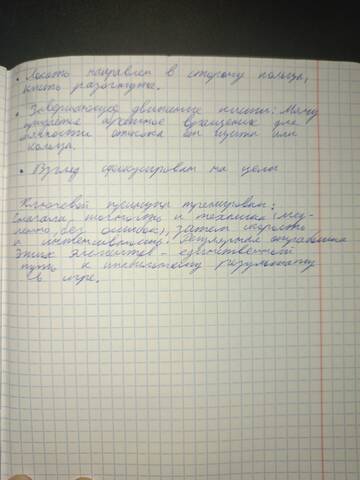 • Локоть направлен в сторону кольца,
кисть разогнута.
• Завершающее движение кисти: Мячу
придаётся обратное вращение для
точности отскока от щита или
кольца.
• Взгляд сфокусирован на цели
Ключевой принцип тренировки:
Сначала точность и техника (мед-
ленно, без ошибок), затем скорость
и интенсивность. Регулярная отработка
этих элементов - единственный
путь к стабильному результату
в игре.